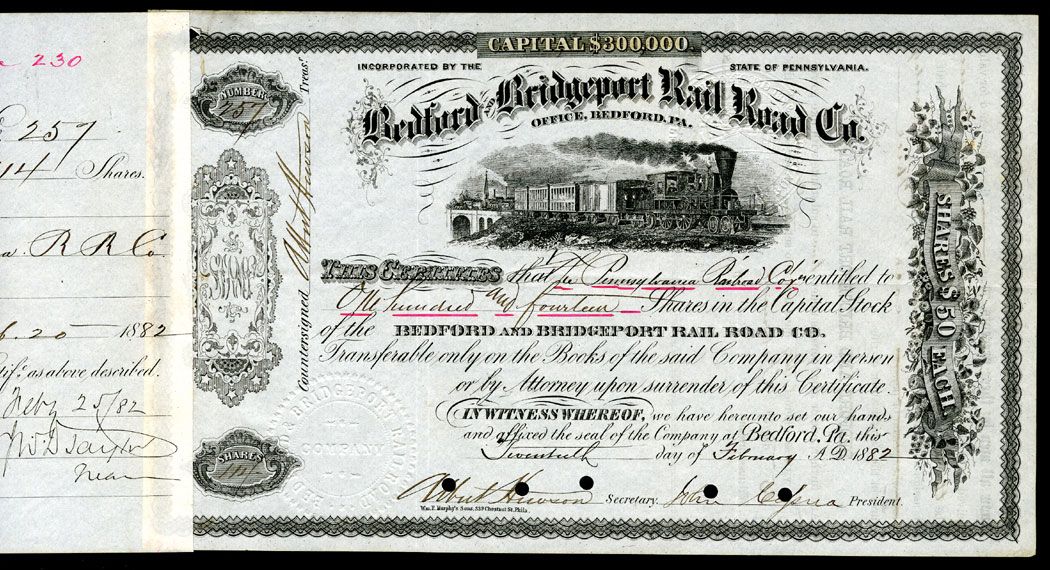 230
257
114 Shares.
R R Co.
20 1882
as above described.
Feby 25/82
CAPITAL $300,000.
INCORPORATED BY THE STATE OF PENNSYLVANIA.
Bedford and Bridgeport Rail Road Co.
OFFICE, BEDFORD, PA.
NUMBER
257
Countersigned Treasr.
This Certifies that The Pennsylvania Railroad Coy is entitled to
One hundred and fourteen Shares in the Capital Stock
of the BEDFORD AND BRIDGEPORT RAIL ROAD CO.
Transferable only on the Books of the said Company in person
or by Attorney upon surrender of this Certificate.
IN WITNESS WHEREOF, we have hereunto set our hands
and affixed the seal of the Company at Bedford, Pa. this
Twentieth day of February A.D. 1882
Secretary. John Cessna President.
Wm. F. Murphy's Sons, 339 Chestnut St. Phila.
SHARES
114
SHARES $50 EACH